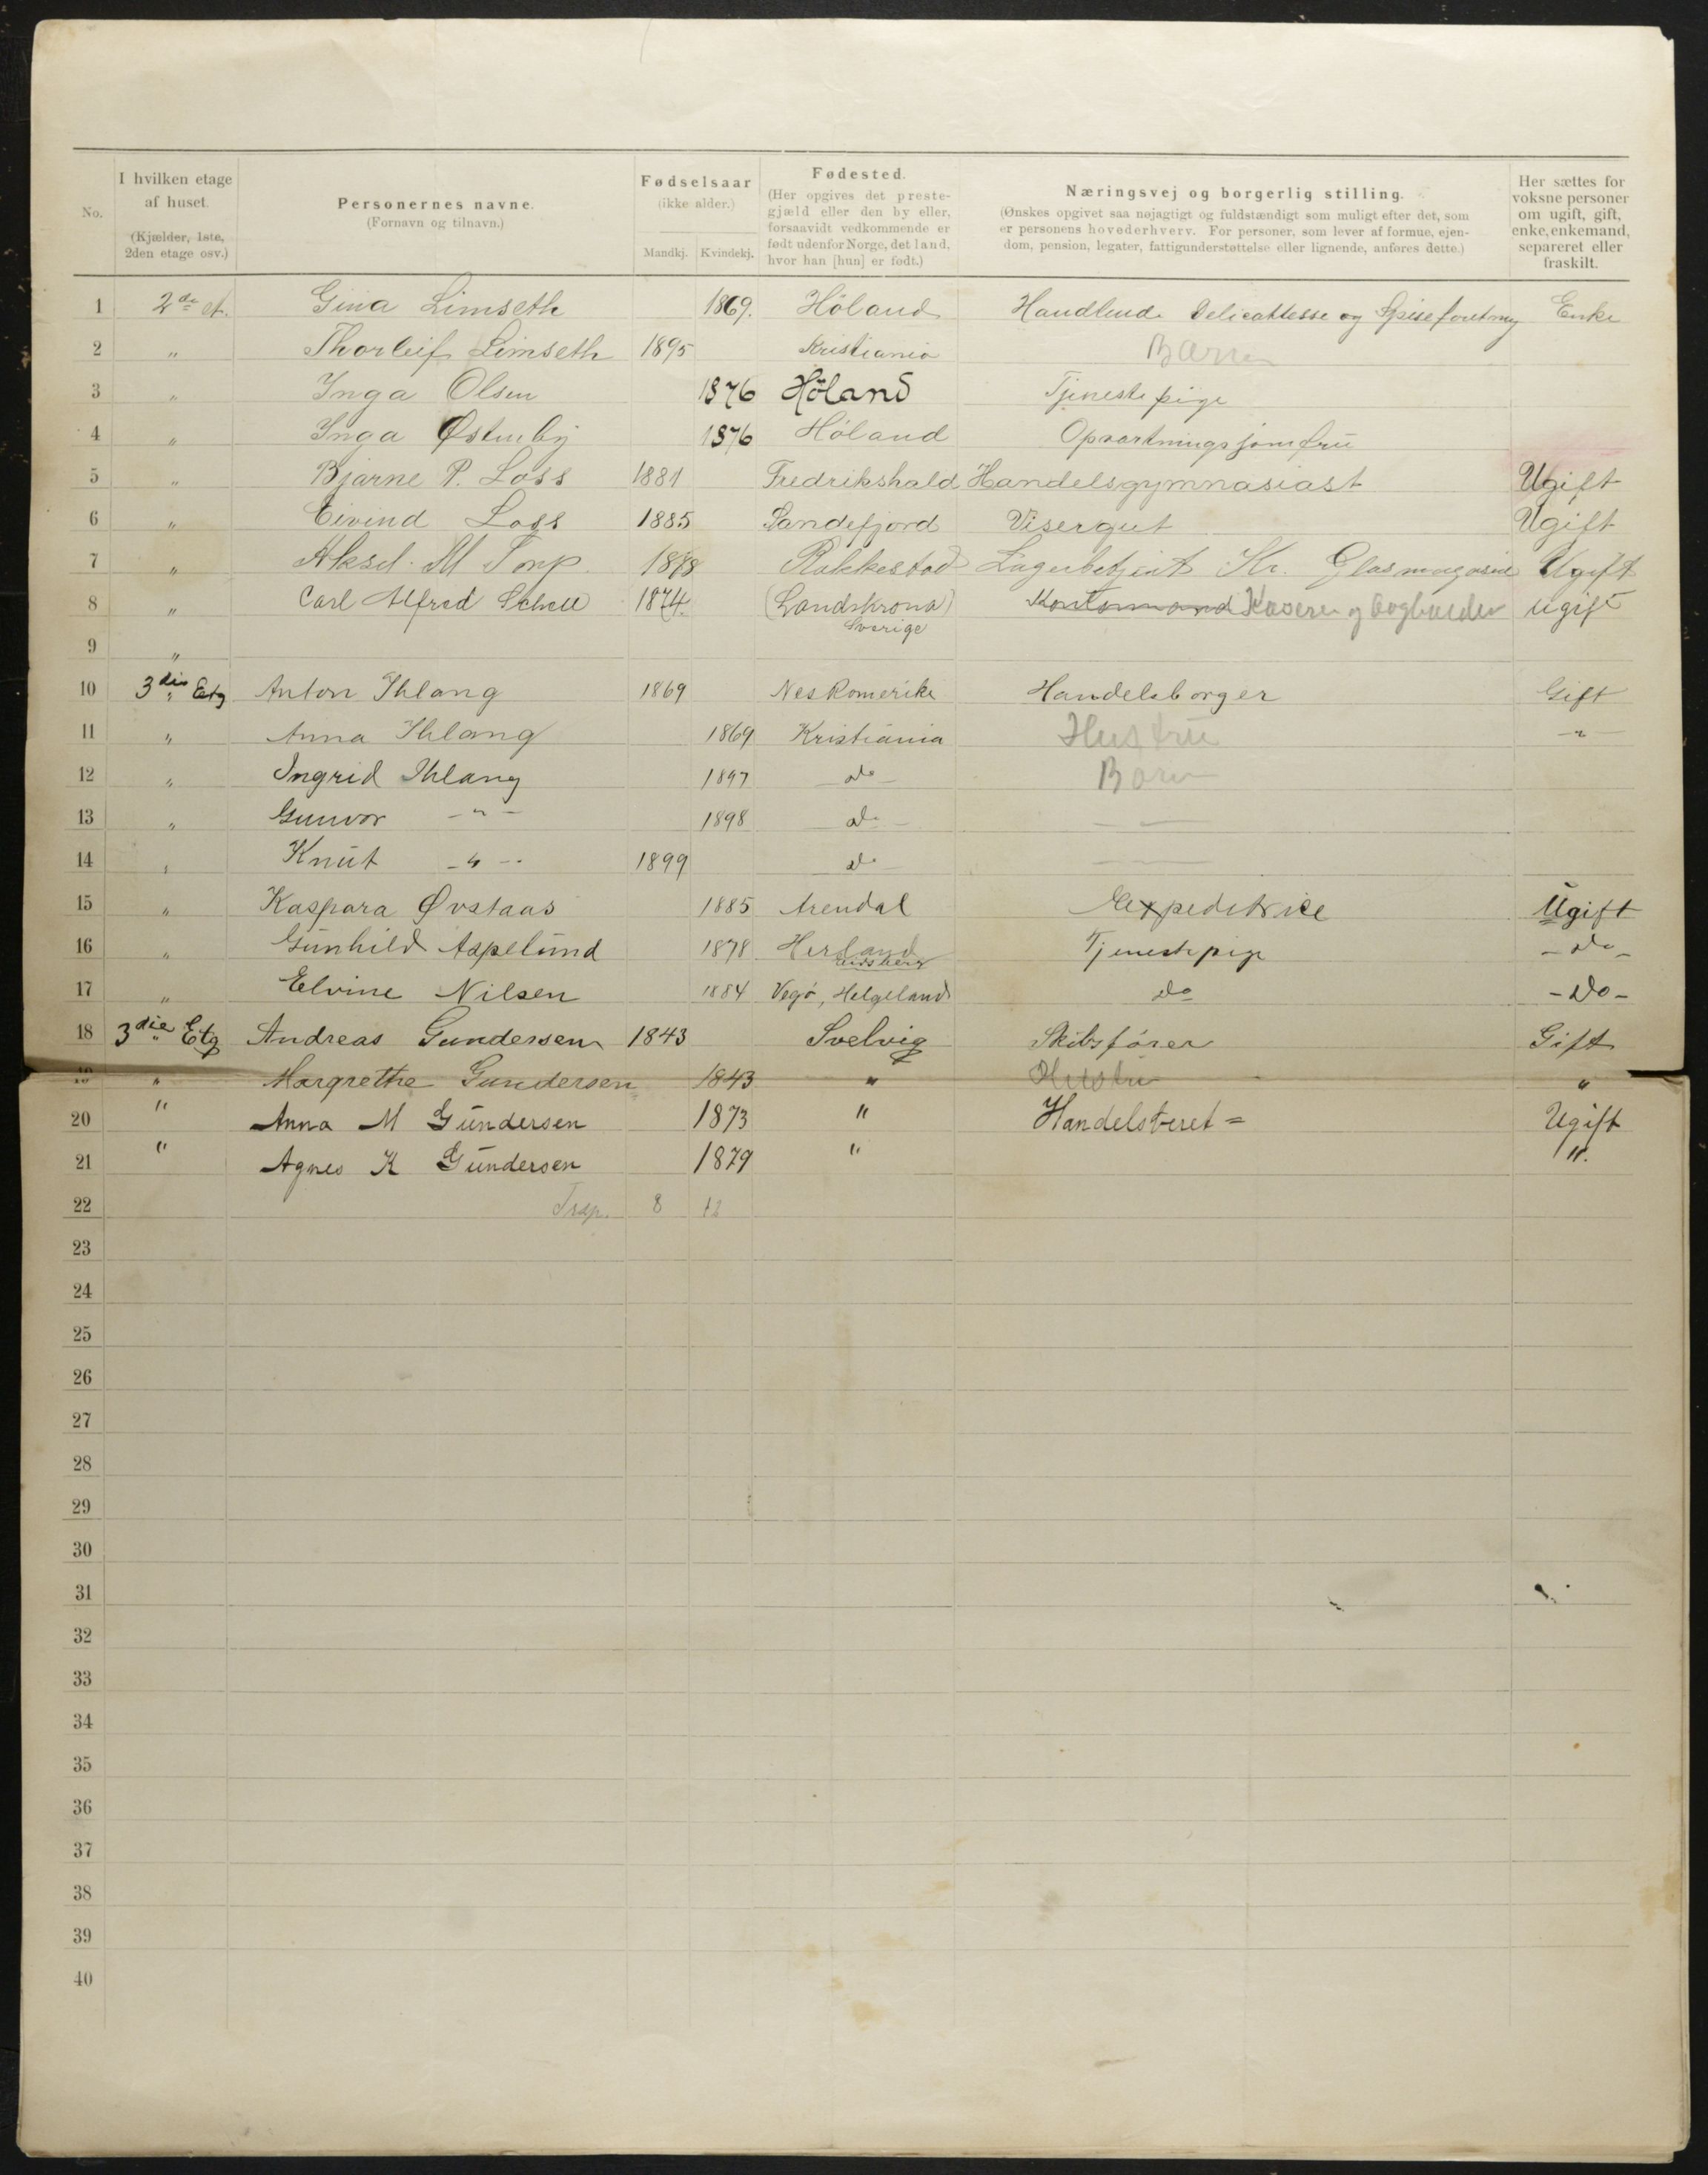 No.
I hvilken etage af huset. (Kjælder, 1ste, 2den etage osv.)
Personernes navne. (Fornavn og tilnavn.)
Fødselsaar (ikke alder.) Mandkj. Kvindekj.
Fødested. (Her opgives det prestegjæld eller den by eller, forsaavidt vedkommende er født udenfor Norge, det land, hvor han [hun] er født.)
Næringsvej og borgerlig stilling. (Ønskes opgivet saa nøjagtigt og fuldstændigt som muligt efter det, som er personens hovederhverv. For personer, som lever af formue, ejendom, pension, legater, fattigunderstøttelse eller lignende, anføres dette.)
Her sættes for voksne personer om ugift, gift, enke, enkemand, separeret eller fraskilt.
1 2de et. Gina Limseth 1869. Höland Handlende Delicattesse og Spiseforetning Enke
2 " Thorleif Limseth 1895 Kristiania Barn
3 " Inga Olsen 1876 Höland Tjenestepige
4 " Inga Østenby 1876 Höland Opvartningsjomfru
5 " Bjarne P. Loss 1881 Fredrikshald Handelsgymnasiast Ugift
6 " Eivind Loss 1885 Sandefjord Visergut Ugift
7 " Aksel M Torp. 1878 Rakkestad Lagerbetjent Kr. Glasmagasin Ugift
8 " Carl Alfred Schell 1874. (Landskrona) Sverige Kontormand Kaserer og bogholder ugift
9 "
10 3die Etg Anton Ihlang 1869 Nes Romerike Handelsborger Gift
11 " Anna Ihlang 1869 Kristiania Hustru - " -
12 " Ingrid Ihlang 1897 do Barn
13 " Gunvor - " - 1898 do — —
14 " Knut - " - 1899 do — —
15 " Kaspara Øvstaas 1885 Arendal Expeditrice Ugift
16 " Gunhild Aspelund 1878 Herland Eidsberg Tjenestepige - do -
17 " Elvine Nilsen 1884 Vegö, Helgeland do - do -
18 3die Etg Andreas Gundersen 1843 Svelvig Skibsfører Gift
19 " Margrethe Gundersen 1843 " Hustru "
20 " Anna M Gundersen 1873 " Handelsberet = Ugift
21 " Agnes K Gundersen 1879 " ".
22 Trsp. 8 12
23
24
25
26
27
28
29
30
31
32
33
34
35
36
37
38
39
40